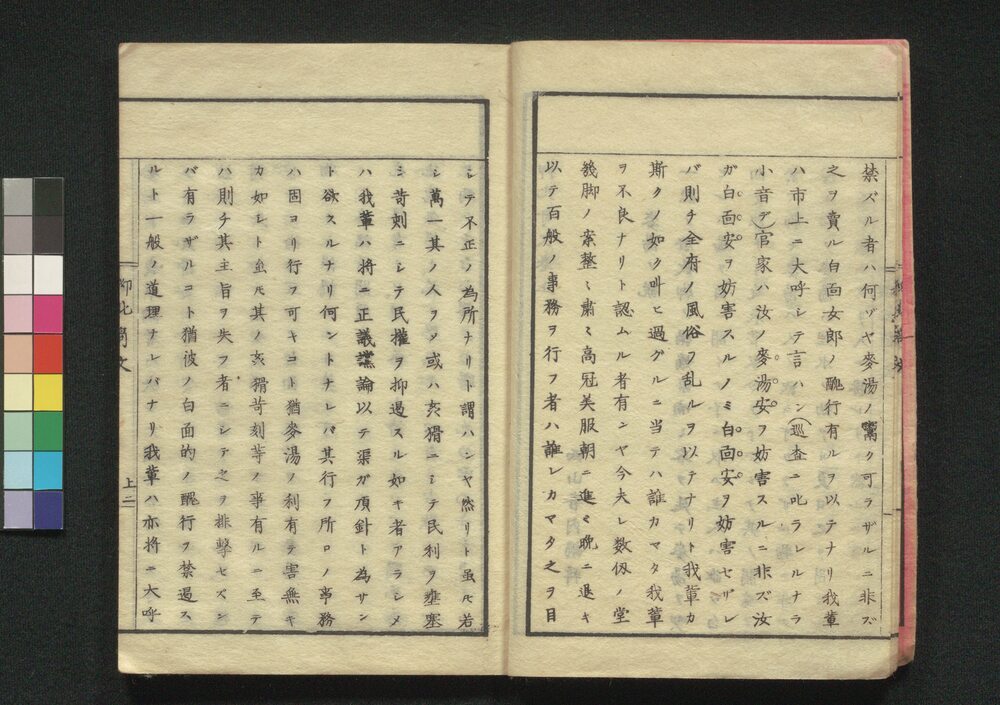 禁ズル者ハ何ゾヤ麥湯ノ鬻ク可ラザルニ非ズ
之ヲ賣ル白面女郎ノ醜行有ルヲ以テナリ我輩
ハ市上ニ大呼シテ言ハン(巡査ニ叱ラレルナラ
小音デ)官家ハ汝ノ麥湯安ヲ妨害スルニ非ズ汝
ガ白面安ヲ妨害スルノミ白面安ヲ妨害セザレ
バ則チ全府ノ風俗ヲ乱ルヲ以テナリト我輩カ
斯クノ如ク叫ヒ過グルニ当テハ誰カマタ我輩
ヲ不良ナリト認ムル者有ンヤ今夫レ数仭ノ堂
幾脚ノ案整々肅々高冠美服朝ニ進ミ晩ニ退キ
以テ百般ノ事務ヲ行フ者ハ誰レカマタ之ヲ目
シテ不正ノ為所ナリト謂ハンヤ然リト虽𪜈若
シ萬一其ノ人ヲシ或ハ亥猾ニシテ民利ヲ壅塞
シ苛刻ニシテ民權ヲ抑遏スル如キ者アラシメ
ハ我輩ハ將ニ正議讜論以テ渠ガ頂針ト為サン
ト欲スルナリ何ントナレバ其行フ所ロノ事務
ハ固ヨリ行フ可キコト猶麥湯ノ利有テ害無キ
カ如シト虽𪜈其ノ亥猾苛刻等ノ事有ルニ至テ
ハ則チ其主旨ヲ失フ者ニシテ之ヲ排擊セズン
バ有ラザルコト猶彼ノ白面的ノ醜行ヲ禁遏ス
ルト一般ノ道理ナレバナリ我輩ハ亦將ニ大呼
上二